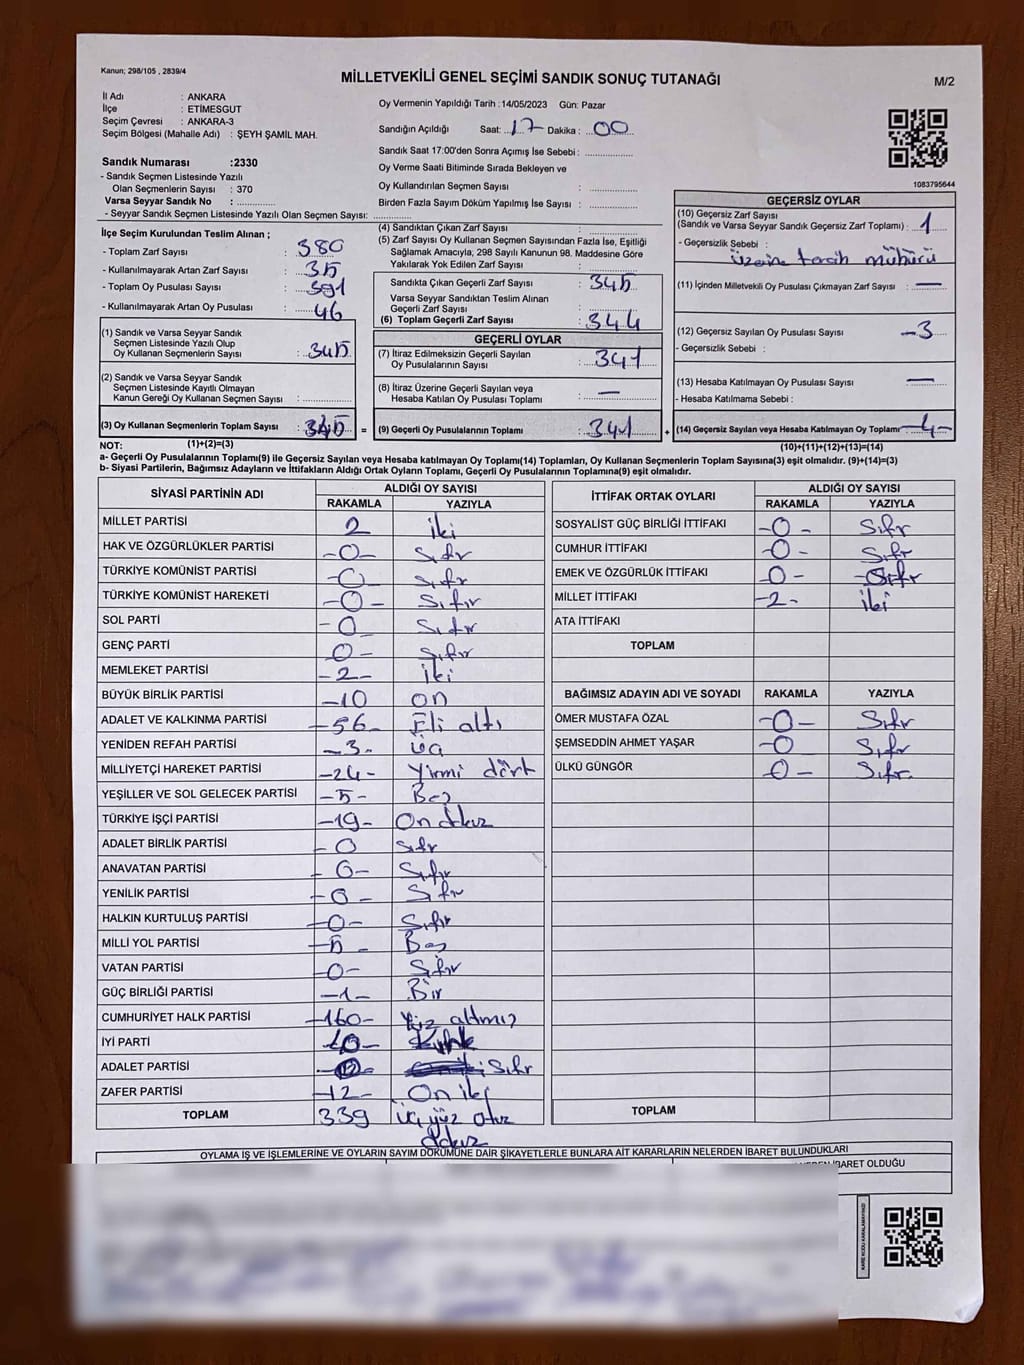 Kanun; 298/105 , 2839/4
MİLLETVEKİLİ GENEL SEÇİMİ SANDIK SONUÇ TUTANAĞI
M/2
İl Adı : ANKARA
İlçe : ETİMESGUT
Seçim Çevresi : ANKARA-3
Seçim Bölgesi (Mahalle Adı) : ŞEYH ŞAMİL MAH.
Sandık Numarası :2330
- Sandık Seçmen Listesinde Yazılı
Olan Seçmenlerin Sayısı : 370
Varsa Seyyar Sandık No : ..............
- Seyyar Sandık Seçmen Listesinde Yazılı Olan Seçmen Sayısı: ..............
Oy Vermenin Yapıldığı Tarih : 14/05/2023 Gün: Pazar
Sandığın Açıldığı Saat: 17 Dakika : 00
Sandık Saat 17:00'den Sonra Açımış İse Sebebi : ..............
Oy Verme Saati Bitiminde Sırada Bekleyen ve
Oy Kullandırılan Seçmen Sayısı : ..............
Birden Fazla Sayım Döküm Yapılmış İse Sayısı : ..............
1083795644
İlçe Seçim Kurulundan Teslim Alınan ;
- Toplam Zarf Sayısı : 380
- Kullanılmayarak Artan Zarf Sayısı : 35
- Toplam Oy Pusulası Sayısı : 391
- Kullanılmayarak Artan Oy Pusulası : 46
(1) Sandık ve Varsa Seyyar Sandık
Seçmen Listesinde Yazılı Olup
Oy Kullanan Seçmenlerin Sayısı : 345
(2) Sandık ve Varsa Seyyar Sandık
Seçmen Listesinde Kayıtlı Olmayan
Kanun Gereği Oy Kullanan Seçmen Sayısı : ..............
(3) Oy Kullanan Seçmenlerin Toplam Sayısı : 345 =
(4) Sandıktan Çıkan Zarf Sayısı : ..............
(5) Zarf Sayısı Oy Kullanan Seçmen Sayısından Fazla İse, Eşitliği
Sağlamak Amacıyla, 298 Sayılı Kanunun 98. Maddesine Göre
Yakılarak Yok Edilen Zarf Sayısı : ..............
Sandıkta Çıkan Geçerli Zarf Sayısı : 345
Varsa Seyyar Sandıktan Teslim Alınan
Geçerli Zarf Sayısı : ..............
(6) Toplam Geçerli Zarf Sayısı : 344
GEÇERLİ OYLAR
(7) İtiraz Edilmeksizin Geçerli Sayılan
Oy Pusulalarının Sayısı : 341
(8) İtiraz Üzerine Geçerli Sayılan veya
Hesaba Katılan Oy Pusulası Toplamı : —
(9) Geçerli Oy Pusulalarının Toplamı : 341 +
GEÇERSİZ OYLAR
(10) Geçersiz Zarf Sayısı
(Sandık ve Varsa Seyyar Sandık Geçersiz Zarf Toplamı) : 1
- Geçersizlik Sebebi :
üzerine tercih mühürü
(11) İçinden Milletvekili Oy Pusulası Çıkmayan Zarf Sayısı : —
(12) Geçersiz Sayılan Oy Pusulası Sayısı : -3
- Geçersizlik Sebebi :
(13) Hesaba Katılmayan Oy Pusulası Sayısı : —
- Hesaba Katılmama Sebebi :
(14) Geçersiz Sayılan veya Hesaba Katılmayan Oy Toplamı -4-
NOT: (1)+(2)=(3)
(10)+(11)+(12)+(13)=(14)
a- Geçerli Oy Pusulalarının Toplamı(9) ile Geçersiz Sayılan veya Hesaba katılmayan Oy Toplamı(14) Toplamları, Oy Kullanan Seçmenlerin Toplam Sayısına(3) eşit olmalıdır. (9)+(14)=(3)
b- Siyasi Partilerin, Bağımsız Adayların ve İttifakların Aldığı Ortak Oyların Toplamı, Geçerli Oy Pusulalarının Toplamına(9) eşit olmalıdır.
SİYASİ PARTİNİN ADI ALDIĞI OY SAYISI
RAKAMLA YAZIYLA
MİLLET PARTİSİ 2 iki
HAK VE ÖZGÜRLÜKLER PARTİSİ -0- Sıfır
TÜRKİYE KOMÜNİST PARTİSİ -0- Sıfır
TÜRKİYE KOMÜNİST HAREKETİ -0- Sıfır
SOL PARTİ -0 Sıfır
GENÇ PARTİ 0- Sıfır
MEMLEKET PARTİSİ -2- iki
BÜYÜK BİRLİK PARTİSİ -10 on
ADALET VE KALKINMA PARTİSİ -56- Elli altı
YENİDEN REFAH PARTİSİ -3- üç
MİLLİYETÇİ HAREKET PARTİSİ -24- Yirmi dört
YEŞİLLER VE SOL GELECEK PARTİSİ -5- Beş
TÜRKİYE İŞÇİ PARTİSİ -19- On dokuz
ADALET BİRLİK PARTİSİ -0 Sıfır
ANAVATAN PARTİSİ -0- Sıfır
YENİLİK PARTİSİ -0- Sıfır
HALKIN KURTULUŞ PARTİSİ -0- Sıfır
MİLLİ YOL PARTİSİ -5- Beş
VATAN PARTİSİ -0- Sıfır
GÜÇ BİRLİĞİ PARTİSİ -1- Bir
CUMHURİYET HALK PARTİSİ -160- Yüz altmış
İYİ PARTİ 40- Kırk
ADALET PARTİSİ -0- Sıfır
ZAFER PARTİSİ -12- On iki
TOPLAM 339 üç yüz otuz
dokuz
İTTİFAK ORTAK OYLARI ALDIĞI OY SAYISI
RAKAMLA YAZIYLA
SOSYALİST GÜÇ BİRLİĞİ İTTİFAKI -0- Sıfır
CUMHUR İTTİFAKI -0- Sıfır
EMEK VE ÖZGÜRLÜK İTTİFAKI -0- Sıfır
MİLLET İTTİFAKI -2- iki
ATA İTTİFAKI
TOPLAM
BAĞIMSIZ ADAYIN ADI VE SOYADI RAKAMLA YAZIYLA
ÖMER MUSTAFA ÖZAL -0- Sıfır
ŞEMSEDDİN AHMET YAŞAR -0 Sıfır
ÜLKÜ GÜNGÖR -0- Sıfır
TOPLAM
OYLAMA İŞ VE İŞLEMLERİNE VE OYLARIN SAYIM DÖKÜMÜNE DAİR ŞİKAYETLERLE BUNLARA AİT KARARLARIN NELERDEN İBARET BULUNDUKLARI
İBARET OLDUĞU
KARE KODU KARALAMAYINIZ!